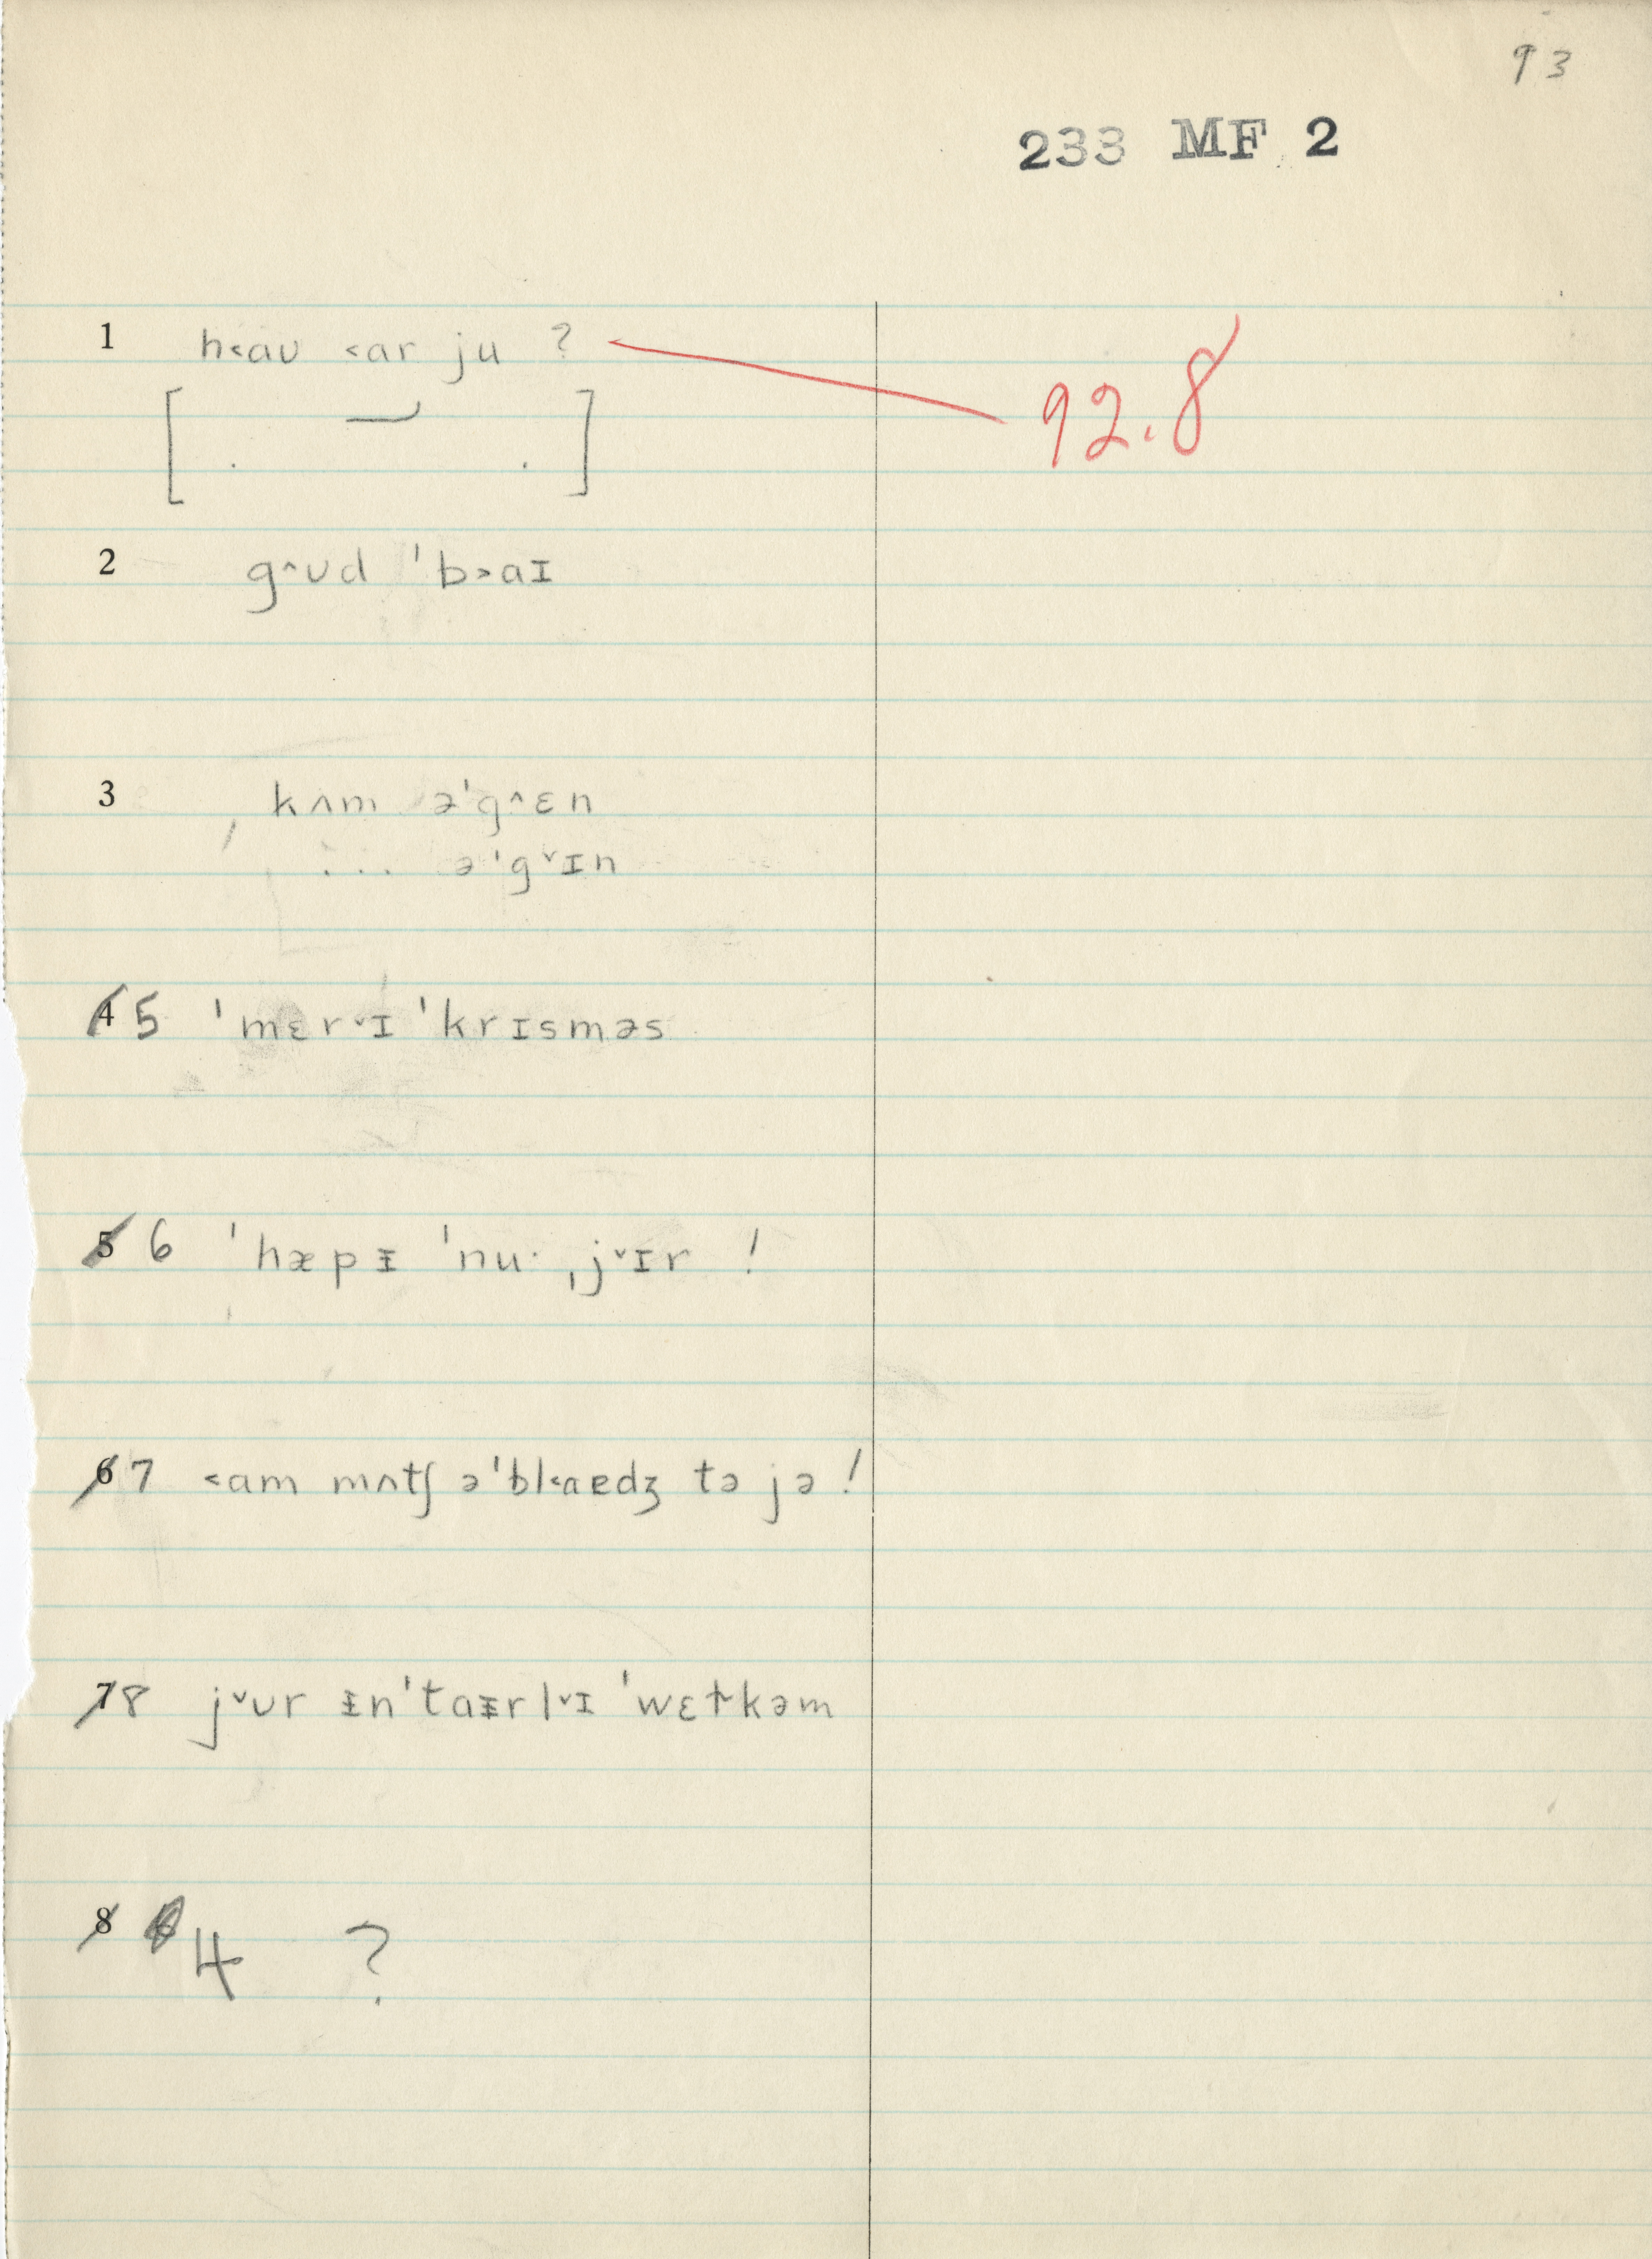 93
233 MF 2
1 h˂aʊ ˂ar ju ?
92.8
[ . . ]
2 g˄ʊd ˈb˃aɪ
3 kʌm əˈg˄ɛn
... əˈg˅ɪn
4 5 ˈmɛr˅ɪ ˈkrɪsməs
5 6 ˈhæpᵻ ˈnu· ˌj˅ɪr !
6 7 ˂am mʌtʃ əˈbl˂aɐdʒ tə jə !
7 8 j˅ʊr ᵻnˈtaᵻrl˅ɪ ˈwɛɫkəm
8 4 ?